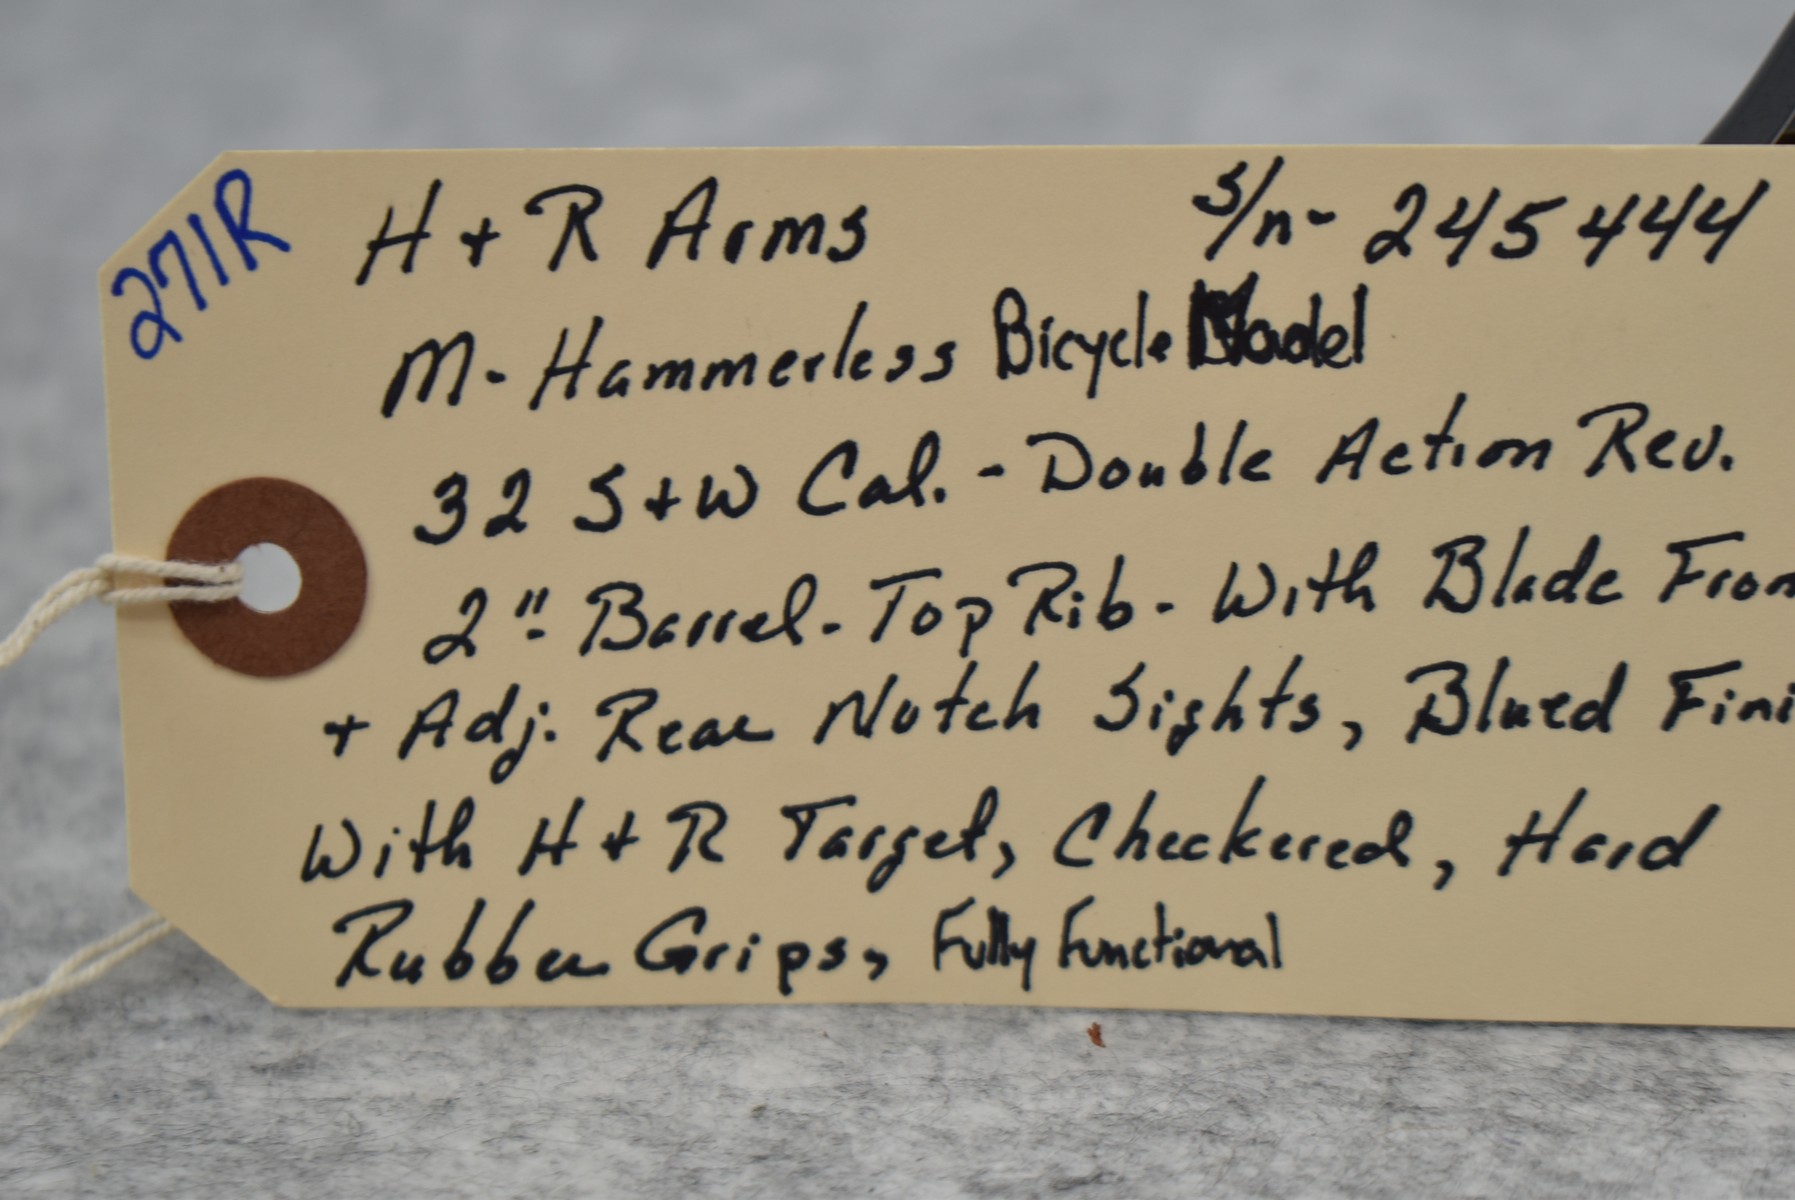 271R
H + R Arms S/n- 245444
M- Hammerless Bicycle Model
32 S+W Cal. - Double Action Rev.
2" Barrel - Top Rib - With Blade Fron
+ Adj. Rear Notch Sights, Blued Fini
With H + R Target, Checkered, Hard
Rubber Grips, Fully Functional